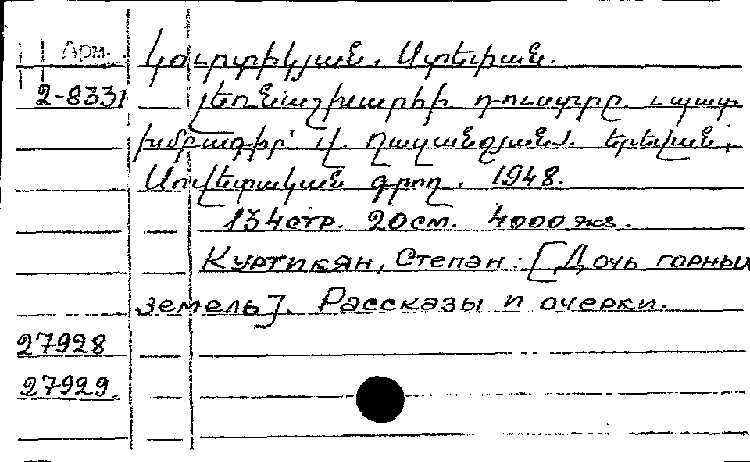 Арм. Կուրտիկյան, Ստեփան.
2-8331 Լեռնաշխարհի դուստրը. պատ
խմբագիր՝ Վ. Ղազանչյան. Երևան,
Սովետական գրող. 1948.
134стр. 20см. 4000 экз.
Куртикян, Степан. [Дочь горных
земель]. Рассказы и очерки.
27928
27929.